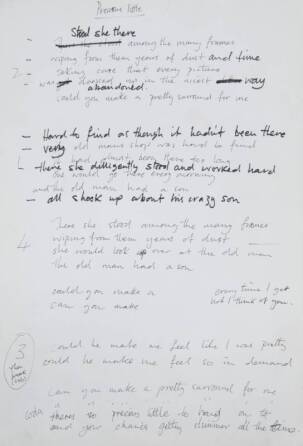 Precious little
Stood she there
among the many frames
- wiping from them years of dust and time
2 - taking care that every picture
- was dressed up in the nicest way
abandoned.
could you make a pretty surround for me
- Hard to find as though it hadn't been there
- very old mans shop was hard to find
had almost been there too long
1 - there she dilligently stood and worked hard
She would go there every morning
and the old man had a son
- all shook up about his crazy son
There she stood among the many frames
4 wiping from them years of dust
she would look up over at the old man
the old man had a son
could you make a every time I get
can you make hot I think of you.
3 could he make me feel like I was pretty
could he make me feel so in demand
can you make a pretty surround for me
Coda theres so precious little to hand on to
and your chances getting slimmer all the time